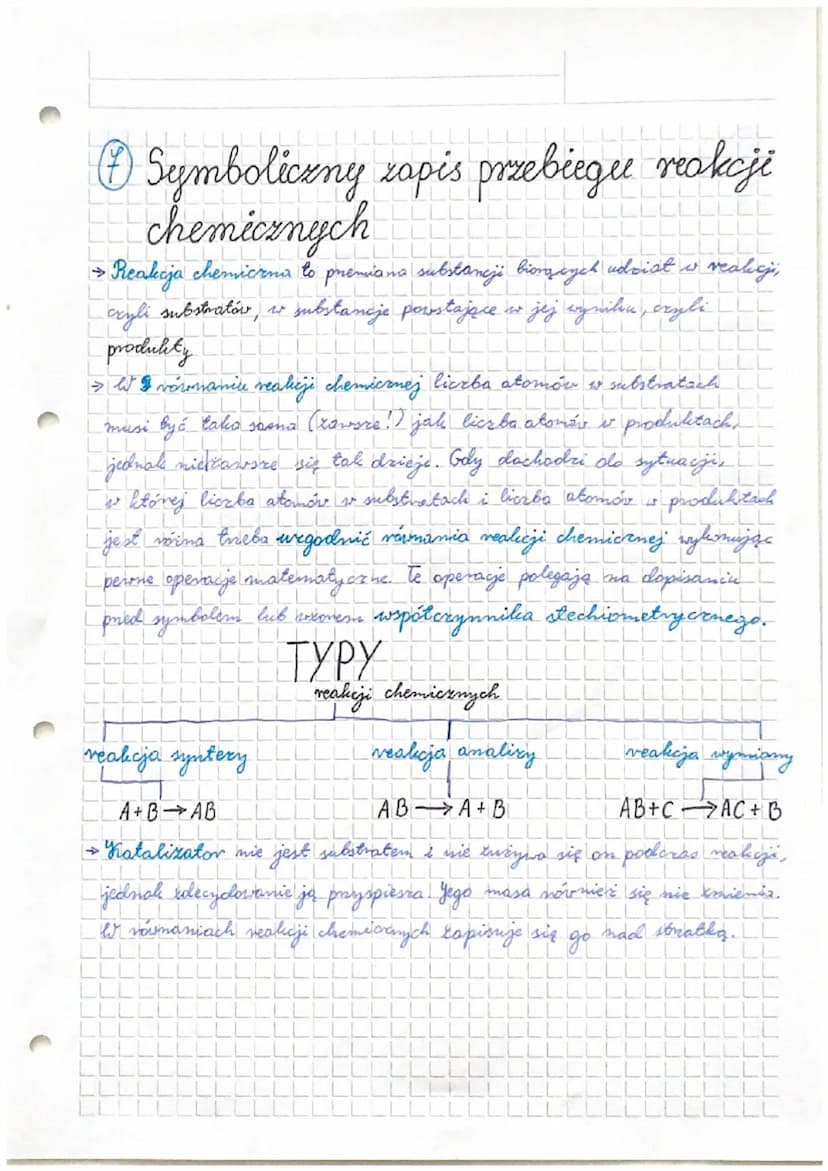 7 Symboliczny zapis przebiegu reakcji
chemicznych
→ Reakcja chemiczna to przemiana substancji biorących udział w reakcji,
czyli substratów, w substancje powstające w jej wyniku, czyli
produkty
→ W równaniu reakcji chemicznej liczba atomów w substratach
musi być taka sama (zawsze!) jak liczba atomów w produktach,
jednak nie zawsze się tak dzieje. Gdy dochodzi do sytuacji,
w której liczba atomów w substratach i liczba atomów w produktach
jest różna trzeba uzgodnić równania reakcji chemicznej wykonując
pewne operacje matematyczne. Te operacje polegają na dopisaniu
przed symbolem lub wzorem współczynnika stechiometrycznego.
TYPY
reakcji chemicznych
reakcja syntezy reakcja analizy reakcja wymiany
A+B→AB AB→A+B AB+C→AC+B
→ Katalizator nie jest substratem i nie zużywa się on podczas reakcji,
jednak zdecydowanie ją przyspiesza. Jego masa również się nie zmienia.
W równaniach reakcji chemicznych zapisuje się go nad strzałką.